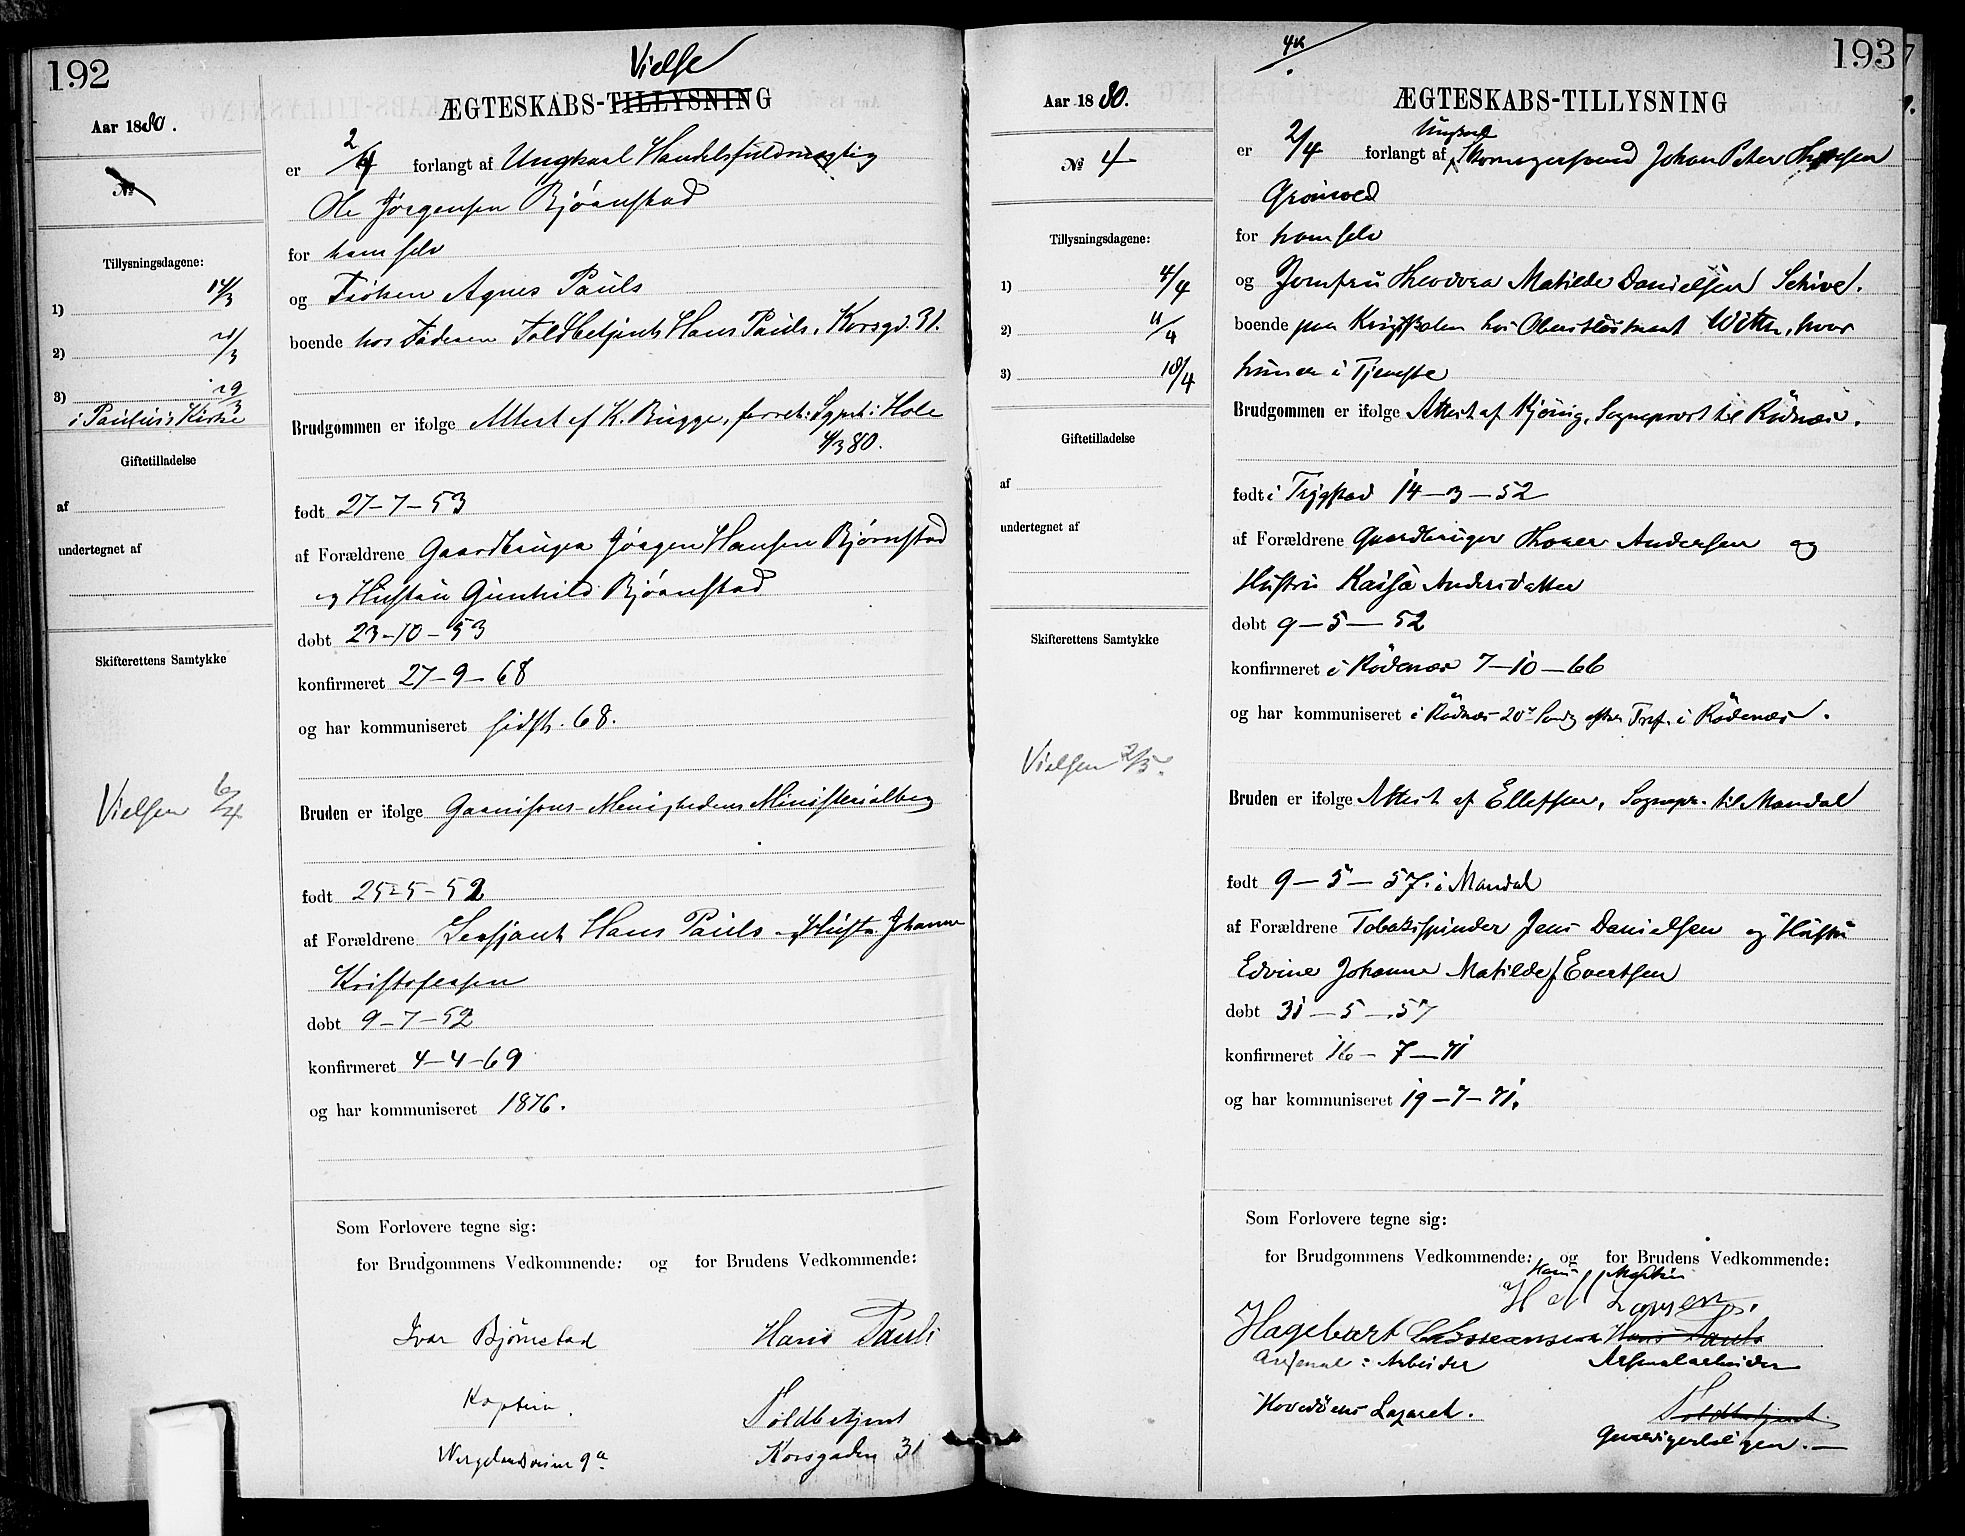 192
Vielse
ÆGTESKABS-TILLYSNING
Aar 1880.
№
Tillysningsdagene:
1) 14/3
2) 21/3
3) 29/3
i Paulus Kirke
Giftetilladelse
af
undertegnet af
Skifterettens Samtykke
Vielsen 6/4
er 2/4 forlangt af Ungkarl Handelsfuldmægtig
Ole Jørgensen Bjørnstad
for ham selv
og Frøken Agnes Pauls
boende hos Faderen Toldbetjent Hans Pauls, Korsgd. 31.
Brudgommen er ifølge Attest af K. Brigge, forret. Sgpst i Hole
4/3 80.
født 27-7-53
af Forældrene Gaardbruger Jørgen Hansen Bjørnstad
og Hustru Gunhild Bjørnstad
døbt 23-10-53
konfirmeret 27-9-68
og har kommuniseret sidst. 68.
Bruden er ifølge Garnisons-Menighedens Ministerialbog
født 25-5-52
af Forældrene Sersjant Hans Pauls og Hustr. Johanne
Kristofersen
døbt 9-7-52
konfirmeret 4-4-69
og har kommuniseret 1876.
Som Forlovere tegne sig:
for Brudgommens Vedkommende: og for Brudens Vedkommende:
Ivar Bjørnstad Hans Pauls
Kaptein. Toldbetjent
9a Korsgaden 31
193
ÆGTESKABS-TILLYSNING
Aar 1880.
№ 4
Tillysningsdagene:
1) 4/4
2) 11/4
3) 18/4
Giftetilladelse
af
undertegnet af
Skifterettens Samtykke
Vielsen 2/5.
Ungkarl
er 2/4 forlangt af Skomagersvend Johan Peter
for ham selv
og Jomfru Theodora Matilde Danielsen Schive.
boende paa Krigsskolen hos Oberstløitnant, hvor
hun er i Tjeneste
Brudgommen er ifølge Attest af Kjønig, Sogneprest til Rødnæs.
født i Trygstad 14-3-52
af Forældrene Gaardbruger Andersen og
Hustru Kaisa Andersdatter
døbt 9-5-52
konfirmeret i Rødenæs 7-10-66
og har kommuniseret i Rødnæs 20de Søndg efter Tref. i Rødenæs.
Bruden er ifølge Attest af Ellefsen, Sognepr. til Mandal
født 9-5-57. i Mandal
af Forældrene Tobaksspinder Jens Danielsen og Hustru
Edvine Johanne Matilde f. Evertsen
døbt 31-5-57
konfirmeret 16-7-71
og har kommuniseret 19-7-71.
Som Forlovere tegne sig:
for Brudgommens Vedkommende: og for Brudens Vedkommende:
Hans Martin
H M Larsen.
Hagebart Hans Pauls
Arsenal: Arbeider Arsenalarbeider
Hovedøens Lazaret. Toldbetjent